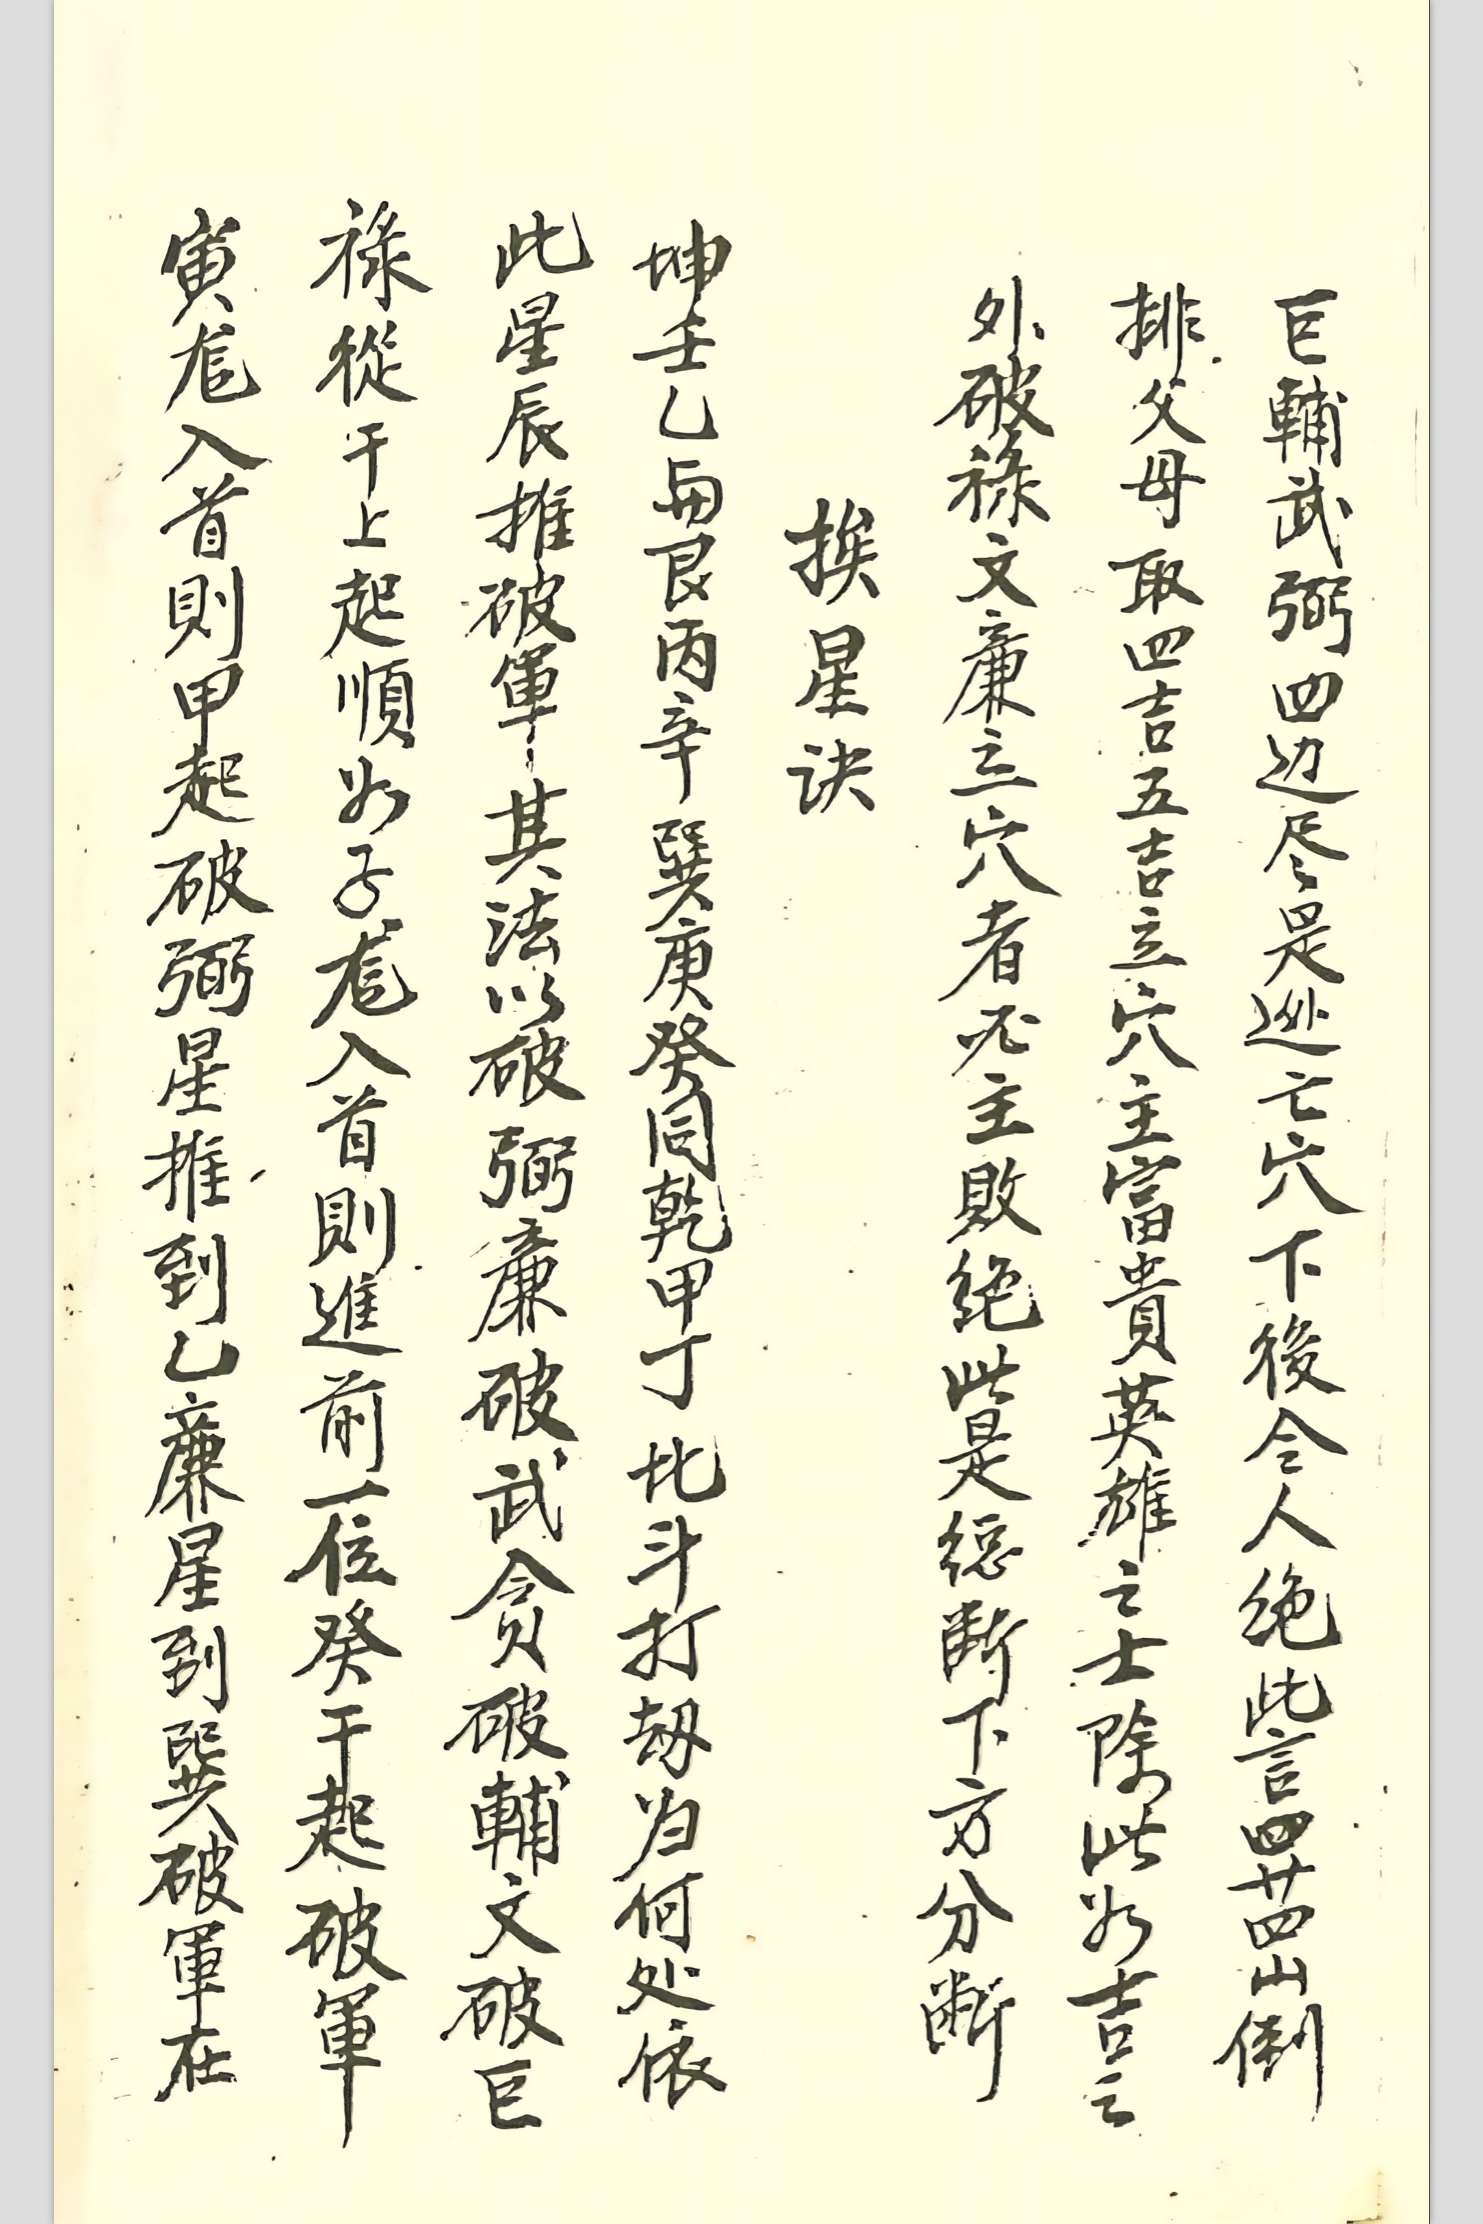 巨輔武弼四边尽是逃亡穴下後令人绝此言四廿四山倒
排父母取四吉五吉立穴主富貴英雄之士除此如吉之
外破祿文廉立穴者必主敗绝此是總断下方分断
挨星诀
坤壬乙與艮丙辛巽庚癸同乾甲丁北斗打刼为何处依
此星辰推破軍其法以破弼廉破武贪破輔文破巨
祿從干上起順如子龙入首則進前一位癸干起破軍
寅龙入首則甲起破弼星推到乙廉星到巽破軍在